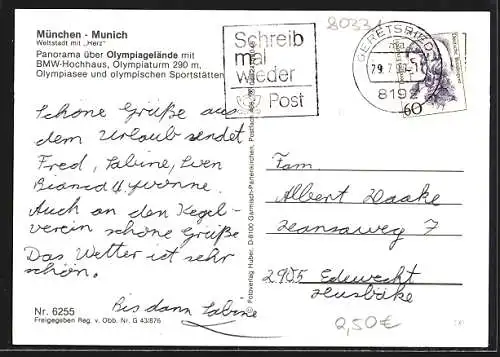 München - Munich
Weltstadt mit „Herz"
Panorama über Olympiagelände mit
BMW-Hochhaus, Olympiaturm 290 m,
Olympiasee und olympischen Sportstätten
Schöne Grüße aus
dem Urlaub sendet
Fred, Sabine, Sven
Bianca u. Yvonne.
Auch an den Kegel-
verein schöne Grüße
Das Wetter ist sehr
schön.
Bis dann Sabine
Nr. 6255
Freigegeben Reg. v. Obb. Nr. G 43/876
Fotoverlag Huber, D-8100 Garmisch-Partenkirchen
80331
Schreib
mal
wieder
Post
GERETSRIED
8192
60
Fam.
Albert Daake
Jansaweg 7
2905 Edewecht
Husbäke
2,50€